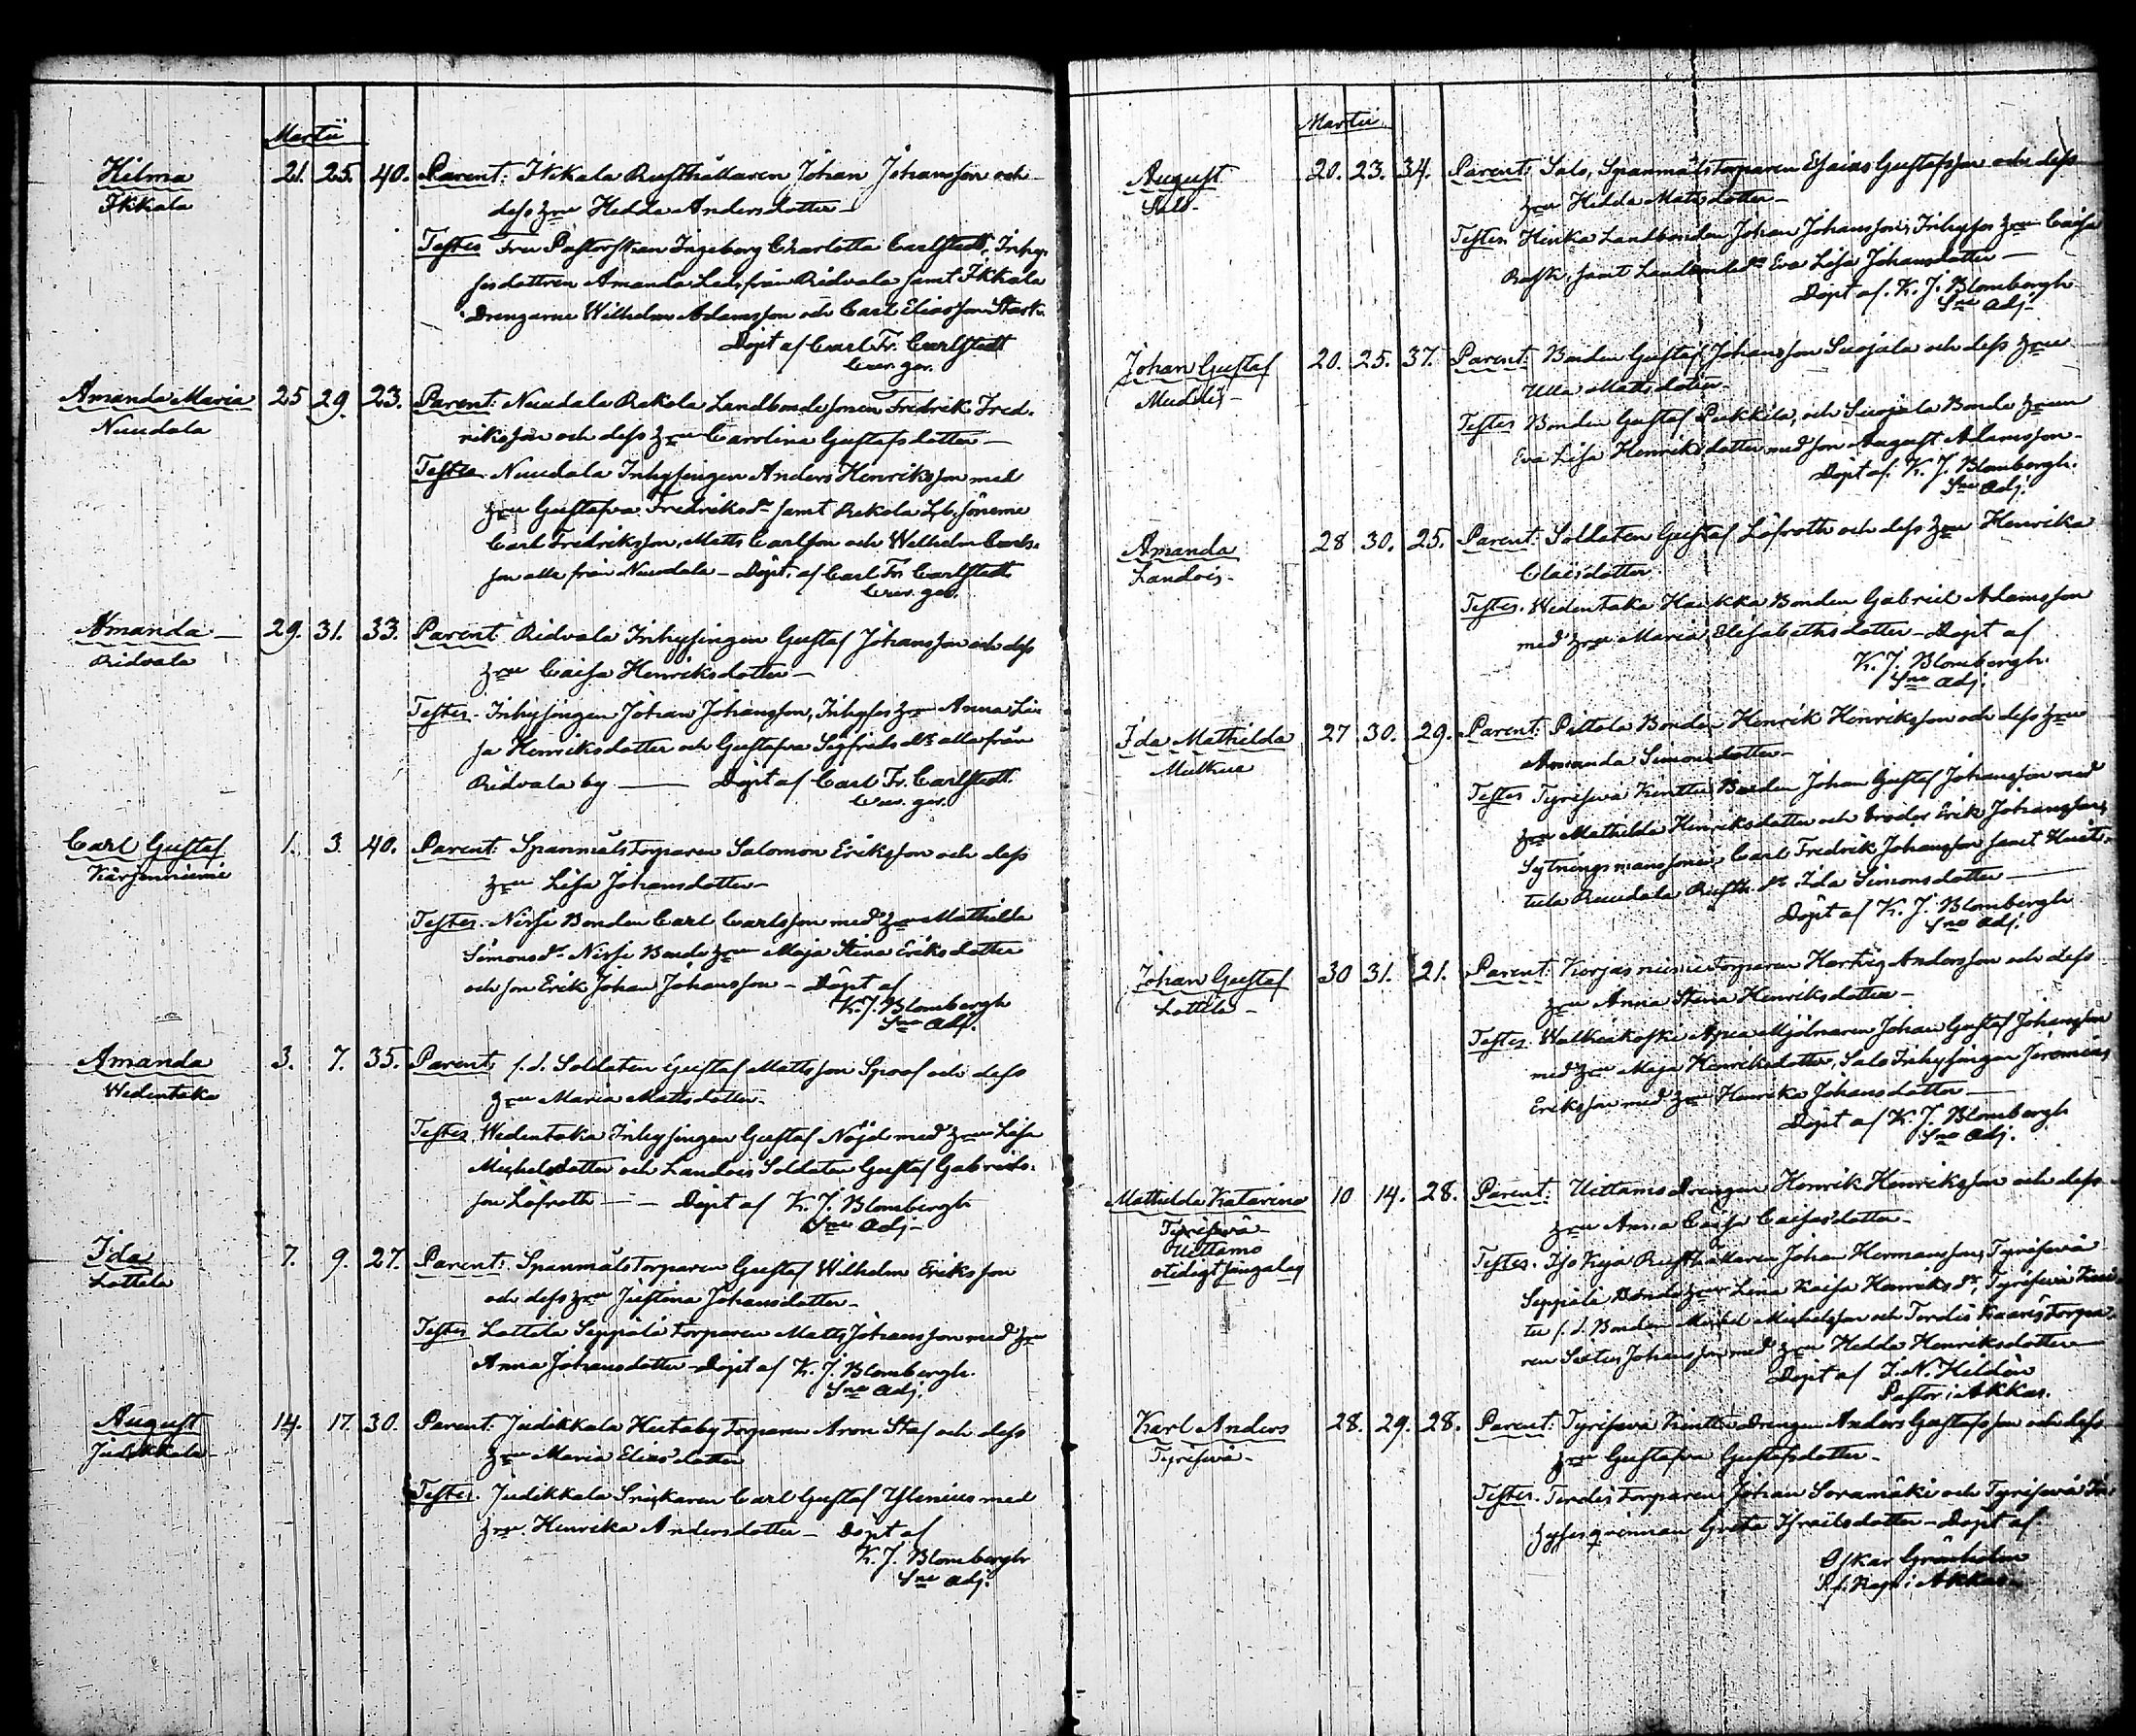 Martii
Hilma 21. 25. 40. Parent: Ikkala Rusthållaren Johan Johansson och
Ikkala dess hru Hedda Andersdotter
Testes Fru Pastorskan Ingeborg Charlotta Carlstedt, Inhy-
sesdottren Amanda från Ridvala samt Ikkala
Drengarne Wilhelm Adamsson och Carl Eliasson Stark.
Döpt af Carl Fr. Carlstedt
Amanda Maria 25 29. 23. Parent: Nuudala Rekola Landbondesonen Fredrik Fred-
Nuudala riksson och dess hru Carolina Gustafsdotter
Testes Nuudala Inhysingen Anders Henriksson med
hru Gustafva Fredriksdr samt Rekola Lb. sönerne
Carl Fredriksson, Matts Carlsson och Wilhelm Carls-
son alla från Nuudala - Döpt af Carl Fr. Carlstedt
Amanda 29. 31. 33. Parent Ridvala Inhysingen Gustaf Johansson och dess
Ridvala hru Caisa Henriksdotter
Testes. Inhysingen Johan Johansson, Inhyses hru Anna Li-
sa Henriksdotter och Gustafva Sigfridsdr alla från
Ridvala by Döpt af Carl Fr. Carlstedt
Carl Gustaf 1. 3 40. Parent: Spanmålstorparen Salomon Eriksson och dess
Kärjenniemi hru Lisa Johansdotter
Testes. Nissi Bonden Carl Carlsson med hru Mathilda
Simonsdr Nissi Bonde hru Maja Stina Eriksdotter
och son Erik Johan Johansson - Döpt af
K. J. Blombergh
Sne Adj.
Amanda 3. 7. 35. Parent: f. d. Soldaten Gustaf Mattsson Sproof och dess
Wedentaka hru Maria Mattsdotter
Testes Wedentaka Inhysingen Gustaf Nöjd med hru Lisa
Michelsdotter och Landois Soldaten Gustaf Gabriels-
son Löfroth - Döpt af K. J. Blombergh
Sne Adj.
Ida 7. 9. 27. Parent: Spanmålstorparen Gustaf Wilhelm Eriksson
Lottila och dess hru Justina Johansdotter
Testes Lottila Seppälä torparen Matts Johansson med hru
Anna Johansdotter Döpt af K. J. Blombergh
Sne Adj.
August 14. 17. 30. Parent: Judikkala Huitaby torparen Aron Staf och dess
Judikkala hru Maria Eliasdotter
Testes. Judikkala Snickaren Carl Gustaf Ylenius med
hru Henrika Andersdotter - Döpt af
K. J. Blombergh
Sne Adj.
Martii
August 20. 23. 34. Parent: Salo, Spanmålstorparen Esaias Gustafsson och dess
Salo hru Hedda Matsdotter
Testes Hinka Landbonden Johan Johansson, Inhyses hru Caisa
Rask, samt Eva Lisa Johansdotter
Döpt af. K. J. Blombergh
Sne Adj.
Johan Gustaf 20. 25. 37. Parent: Bonden Gustaf Johansson Suojala och dess hru
Muddis Ulla Mattsdotter
Testes Bonden Gustaf Pukkila, och Suojala Bonde hrun
Eva Lisa Henriksdotter med son August Adamsson
Döpt af. K. J. Blombergh.
Sne Adj.
Amanda 28 30. 25. Parent: Soldaten Gustaf Löfroth och dess hru Henrika
Landois Claesdotter
Testes. Wedentaka Haukka Bonden Gabriel Adamsson
med hru Maria Elisabethsdotter - Döpt af
K. J. Blombergh.
Sne Adj.
Ida Mathilda 27 30. 29. Parent: Pittola Bonden Henrik Henriksson och dess hru
Amanda Simonsdotter
Testes Tyrisevä Kenttu Bonden Johan Gustaf Johansson med
hru Mathilda Henriksdotter och broder Erik Johansson,
Sytningsmanssonen Carl Fredrik Johansson samt
Ruudala Rusth. dr Ida Simonsdotter
Döpt af K. J. Blombergh
Sne Adj.
Johan Gustaf 30 31. 21. Parent: Korjasniemi torparen Hartvig Andersson och dess
Lottila hru Anna Stina Henriksdotter
Testes Walkiakoski Apia Mjölnaren Johan Gustaf Johansson
med hru Maja Henriksdotter, Salo Inhysingen Jeremias
Eriksson med hru Henrika Johansdotter
Döpt af K. J. Blombergh
Sne Adj.
Mathilda Katarina 10 14. 28. Parent: Uittamo Drengen Henrik Henriksson och dess
Tyrisevä hru Anna Caisa Caisasdotter
Uittamo
otidigt
Testes. Iso Kyja Rusthållaren Johan Hermansson, Tyrisevä
Seppälä Bonde hru Lina Kaisa Henriksdr, Tyrisevä Kent-
tu f. d. Bonden Michel Michelsson och Terdis torpa-
ren Johansson med hru Hedda Henriksdotter
Döpt af I. N. Heldán
Pastor i Akkas.
Karl Anders 28. 29. 28. Parent: Tyrisevä Kenttu Drengen Anders Gustafsson och dess
Tyrisevä hru Gustafva Gustafsdotter
Testes. Terdis torparen Johan Soramäki och Tyrisevä In-
hysesqvinnan Greta Israelsdotter - Döpt af
Oskar Granholm
i Akkas